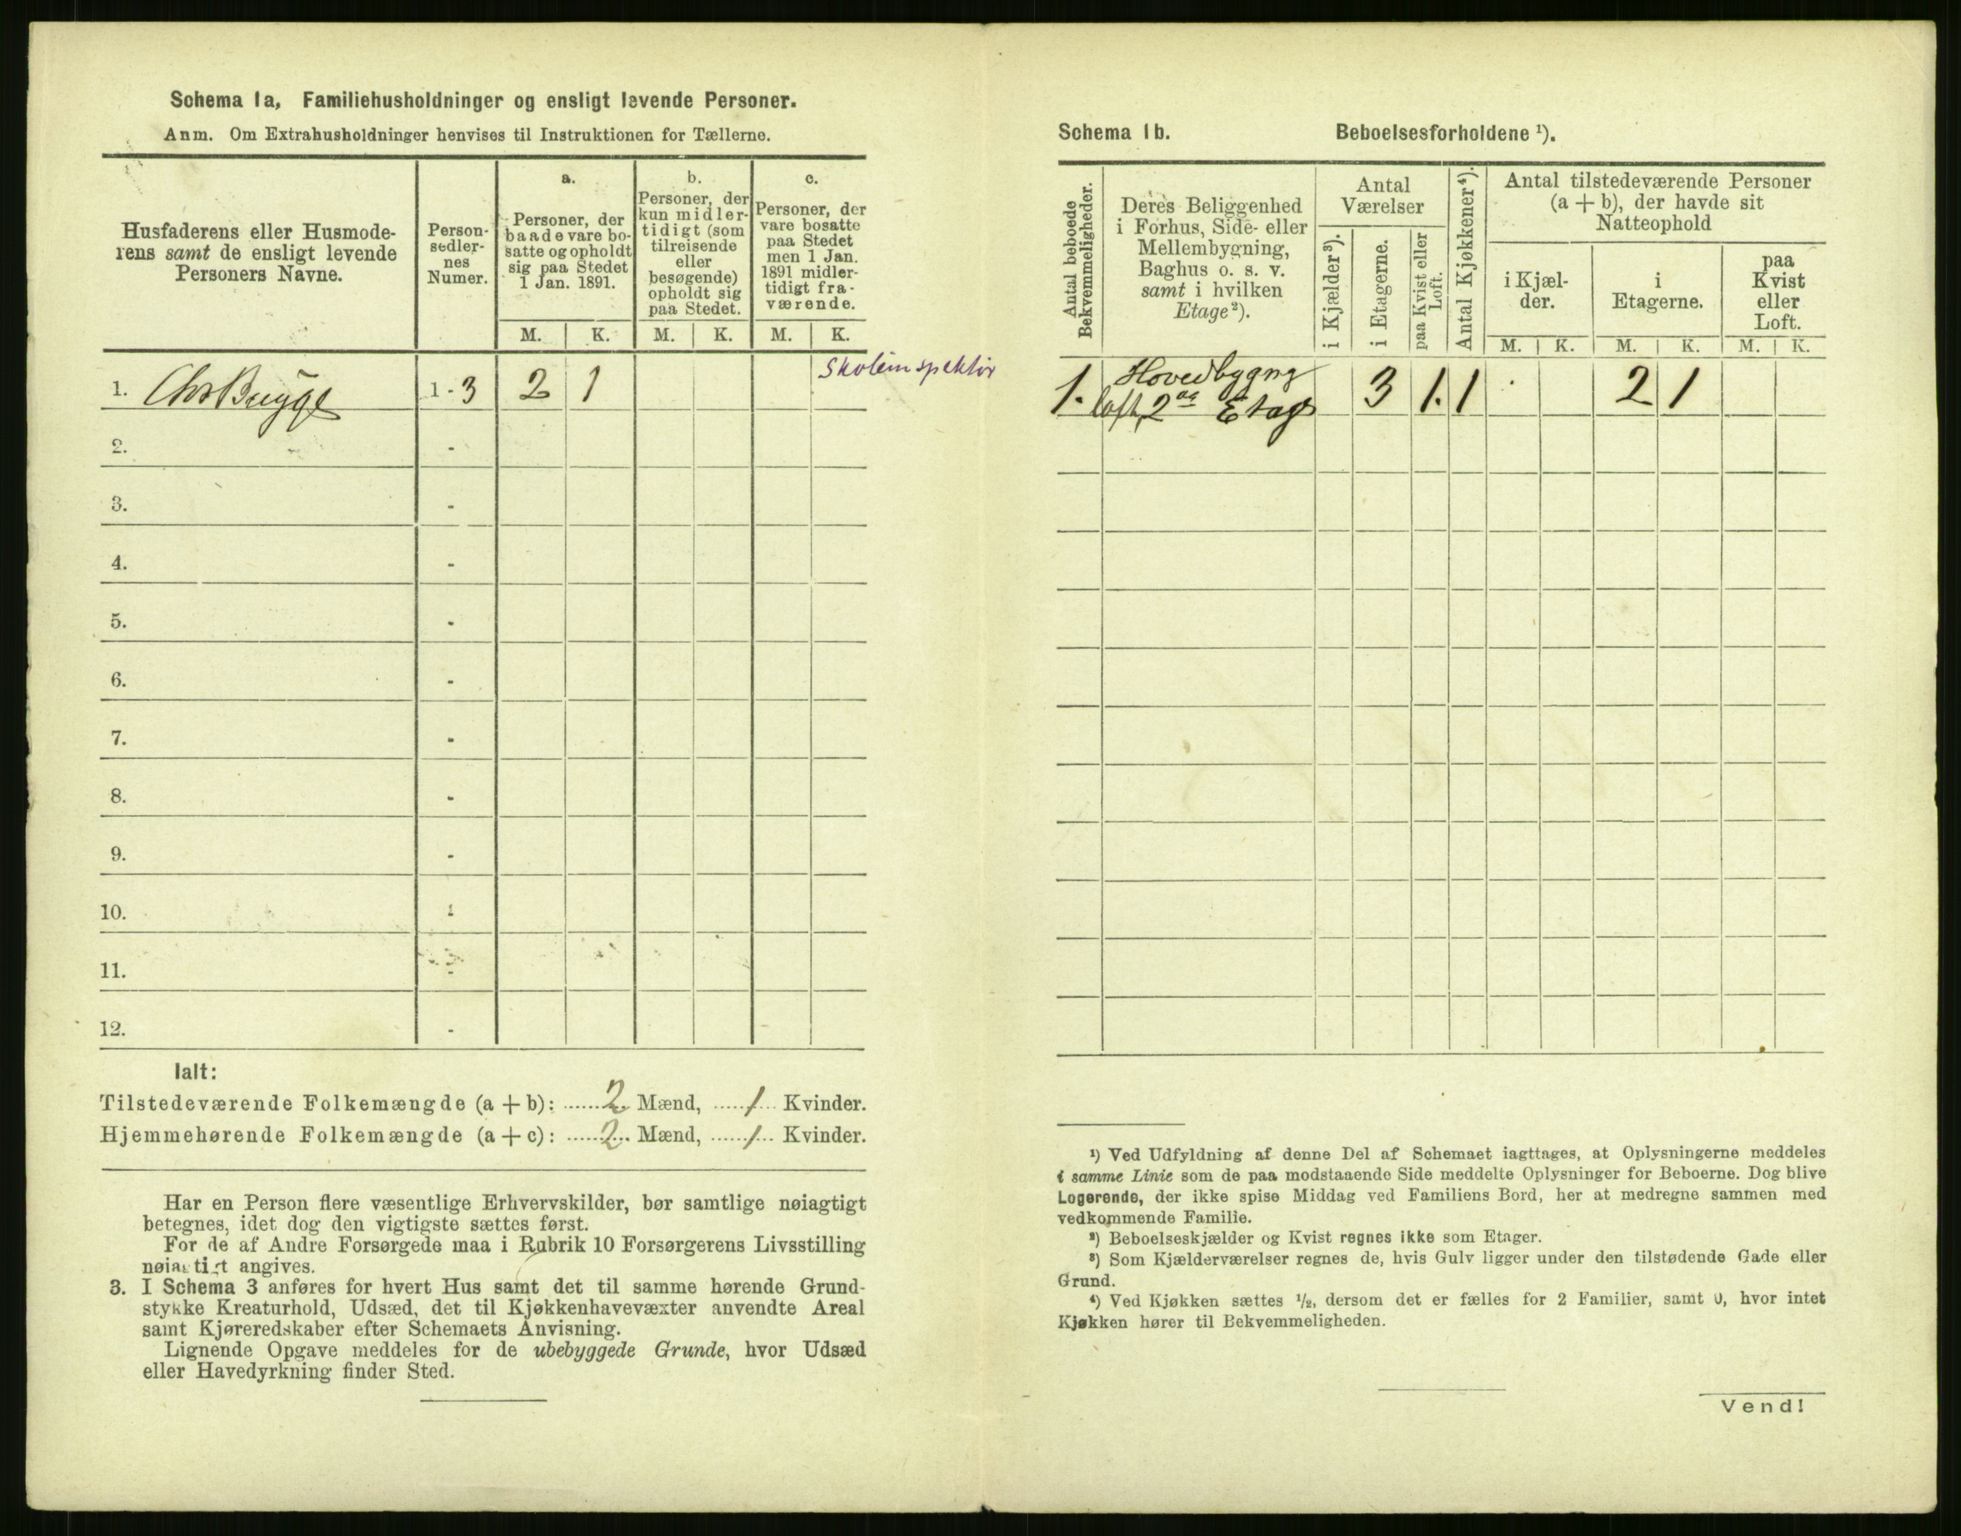 Schema 1a, Familiehusholdninger og ensligt levende Personer.
Anm. Om Extrahusholdninger henvises til Instruktionen for Tællerne.
Husfaderens eller Husmode-
rens samt de ensligt levende
Personers Navne.
Person-
sedler-
nes
Numer.
a.
Personer, der
baade vare bo-
satte og opholdt
sig paa Stedet
1 Jan. 1891.
b.
Personer, der
kun midler-
tidigt (som
tilreisende
eller
besøgende)
opholdt sig
paa Stedet.
c.
Personer, der
vare bosatte
paa Stedet
men 1 Jan.
1891 midler-
tidigt fra-
værende.
M. K. M. K. M. K.
Skoleinspektør
1. Chr Brygge 1 - 3 2 1
2. -
3. -
4. -
5. -
6. -
7. -
8. -
9. -
10.
11. -
12. -
Ialt:
Tilstedeværende Folkemængde (a + b): 2 Mænd, 1 Kvinder.
Hjemmehørende Folkemængde (a + c): 2 Mænd, 1 Kvinder.
Har en Person flere væsentlige Erhvervskilder, bør samtlige nøiagtigt
betegnes, idet dog den vigtigste sættes først.
For de af Andre Forsørgede maa i Rubrik 10 Forsørgerens Livsstilling
nøiagtigt angives.
3. I Schema 3 anføres for hvert Hus samt det til samme hørende Grund-
stykke Kreaturhold, Udsæd, det til Kjøkkenhavevæxter anvendte Areal
samt Kjøreredskaber efter Schemaets Anvisning.
Lignende Opgave meddeles for de ubebyggede Grunde, hvor Udsæd
eller Havedyrkning finder Sted.
Schema 1b. Beboelsesforholdene ¹).
Antal beboede
Bekvemmeligheder.
Deres Beliggenhed
i Forhus, Side- eller
Mellembygning,
Baghus o. s. v.
samt i hvilken
Etage ²).
Antal
Værelser
i Kjælder ³).
i Etagerne.
paa Kvist eller
Loft.
Antal Kjøkkener ⁴).
Antal tilstedeværende Personer
(a + b), der havde sit
Natteophold
i Kjæl-
der.
i
Etagerne.
paa
Kvist
eller
Loft.
M. K. M. K. M. K.
1. Hovedbygng 3 1. 1 2 1
loft, 2 Etage
¹) Ved Udfyldning af denne Del af Schemaet iagttages, at Oplysningerne meddeles
i samme Linie som de paa modstaaende Side meddelte Oplysninger for Beboerne. Dog blive
Logerende, der ikke spise Middag ved Familiens Bord, her at medregne sammen med
vedkommende Familie.
²) Beboelseskjælder og Kvist regnes ikke som Etager.
³) Som Kjælderværelser regnes de, hvis Gulv ligger under den tilstødende Gade eller
Grund.
⁴) Ved Kjøkken sættes ½, dersom det er fælles for 2 Familier, samt 0, hvor intet
Kjøkken hører til Bekvemmeligheden.
Vend!